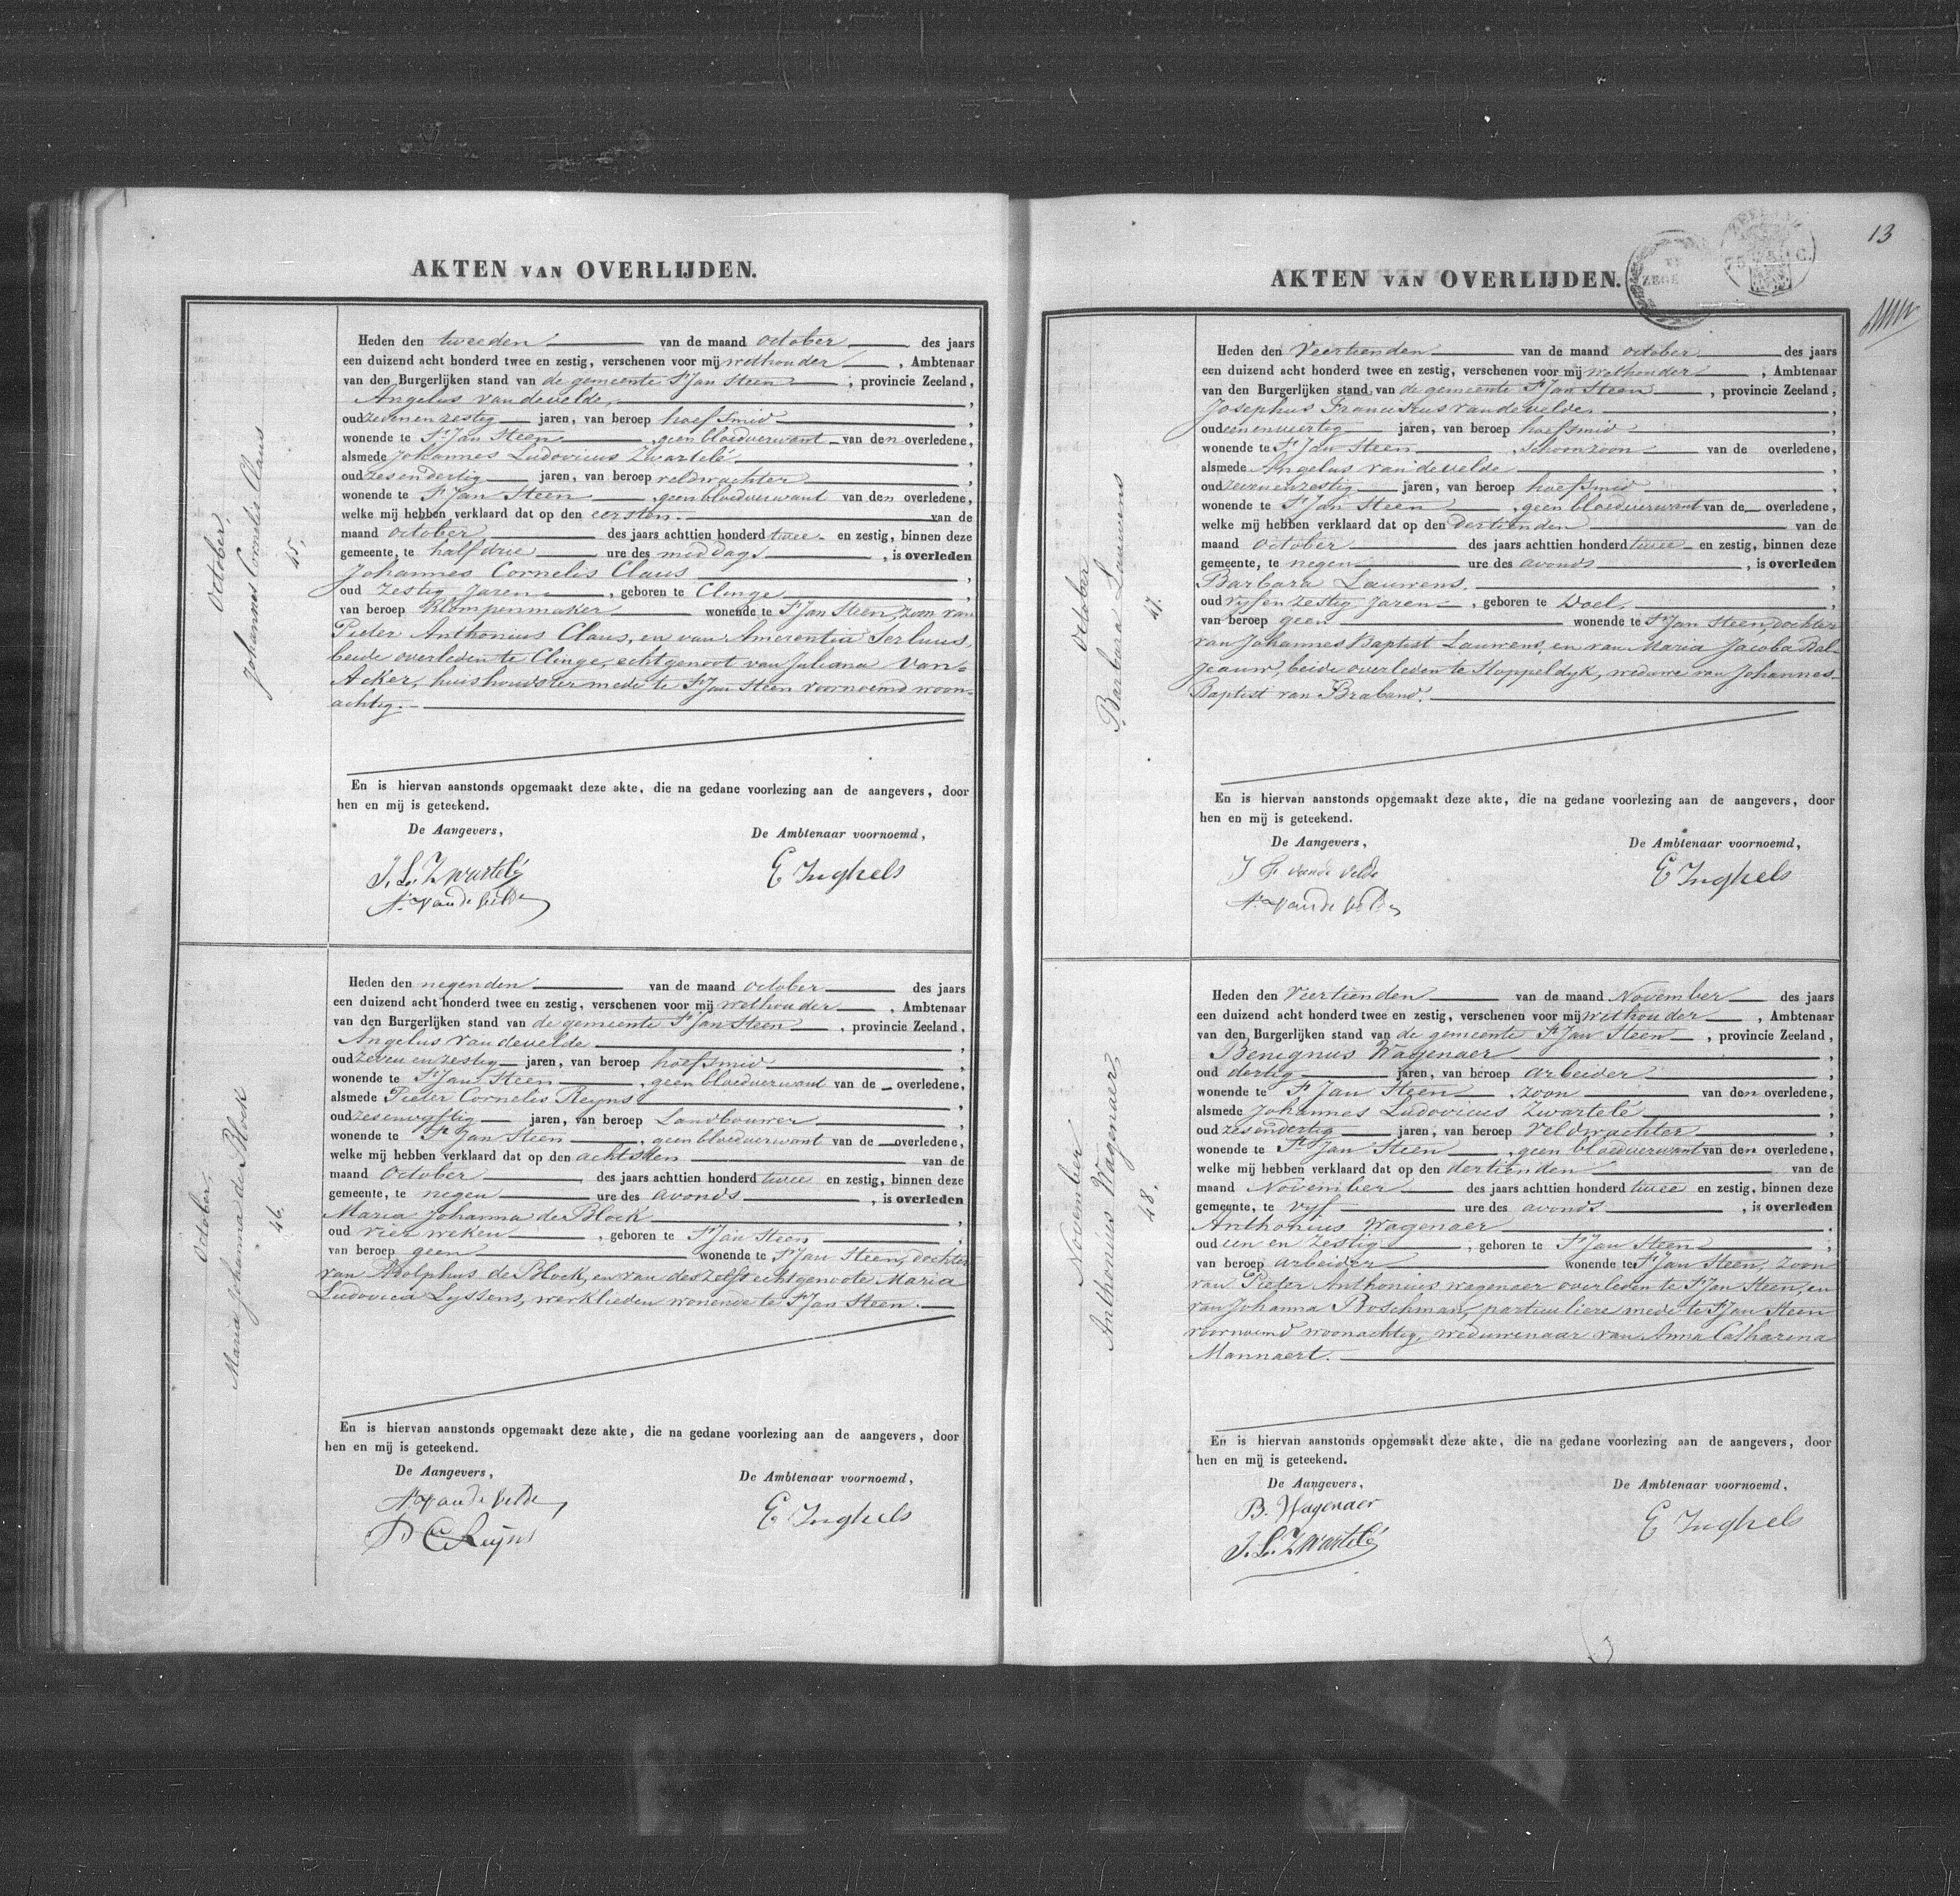 AKTEN VAN OVERLIJDEN.
October,
Johannes Cornelis Claus
45.
Heden den tweeden van de maand October des jaars
een duizend acht honderd twee en zestig, verschenen voor mij wethouder, Ambtenaar
van den Burgerlijken stand van de gemeente St Jan Steen, provincie Zeeland,
Angelus van de velde,
oud zeven en zestig jaren, van beroep hoefsmid,
wonende te St Jan Steen, geen bloedverwant van den overledene,
alsmede Johannes Ludovicus Zwartelé,
oud zesendertig jaren, van beroep veldwachter,
wonende te St Jan Steen, geen bloedverwant van den overledene,
welke mij hebben verklaard dat op den eersten van de
maand October des jaars achttien honderd twee en zestig, binnen deze
gemeente, te half drie ure des middags, is overleden
Johannes Cornelis Claus,
oud zestig Jaren, geboren te Clinge,
van beroep Klompenmaker wonende te St Jan Steen, zoon van
Pieter Anthonius Claus, en van Amerentia Serluus,
beide overleden te Clinge, echtgenoot van Juliana Van-
Acker, huishoudster mede te St Jan Steen voornoemd woon-
achtig.
En is hiervan aanstonds opgemaakt deze akte, die na gedane voorlezing aan de aangevers, door
hen en mij is geteekend.
De Aangevers, De Ambtenaar voornoemd,
J. L. Zwartelé E Inghels
A. van de Velde
October,
Maria Johanna de Block
46.
Heden den negenden van de maand October des jaars
een duizend acht honderd twee en zestig, verschenen voor mij wethouder, Ambtenaar
van den Burgerlijken stand van de gemeente St Jan Steen, provincie Zeeland,
Angelus van de velde,
oud zeven en zestig jaren, van beroep hoefsmid,
wonende te St Jan Steen, geen bloedverwant van de overledene,
alsmede Pieter Cornelis Reyns,
oud zesenvyftig jaren, van beroep Landbouwer,
wonende te St Jan Steen, geen bloedverwant van de overledene,
welke mij hebben verklaard dat op den achtsten van de
maand October des jaars achttien honderd twee en zestig, binnen deze
gemeente, te negen ure des avonds, is overleden
Maria Johanna de Block,
oud vier weken, geboren te St Jan Steen,
van beroep geen wonende te St Jan Steen, dochter
van Adolphus de Block, en van deszelfs echtgenoote Maria
Ludovica Lyssens, werklieden wonende te St Jan Steen.
En is hiervan aanstonds opgemaakt deze akte, die na gedane voorlezing aan de aangevers, door
hen en mij is geteekend.
De Aangevers, De Ambtenaar voornoemd,
A. van de Velde E Inghels
P C Reijns
13
AKTEN VAN OVERLIJDEN.
October
Barbara Lauwens
47.
Heden den Veertienden van de maand October des jaars
een duizend acht honderd twee en zestig, verschenen voor mij wethouder, Ambtenaar
van den Burgerlijken stand van de gemeente St Jan Steen, provincie Zeeland,
Josephus Franciskus van de velde,
oud eenenveertig jaren, van beroep hoefsmid,
wonende te St Jan Steen, schoonzoon van de overledene,
alsmede Angelus van de velde,
oud zevenenzestig jaren, van beroep hoefsmid,
wonende te St Jan Steen, geen bloedverwant van de overledene,
welke mij hebben verklaard dat op den dertienden van de
maand October des jaars achttien honderd twee en zestig, binnen deze
gemeente, te negen ure des avonds, is overleden
Barbara Lauwens,
oud vyf en zestig Jaren, geboren te Doel,
van beroep geen wonende te St Jan Steen, dochter
van Johannes Baptist Lauwens, en van Maria Jacoba Dal-
jeauw, beide overleden te Stoppeldyk, weduwe van Johannes-
Baptist van Braband.
En is hiervan aanstonds opgemaakt deze akte, die na gedane voorlezing aan de aangevers, door
hen en mij is geteekend.
De Aangevers, De Ambtenaar voornoemd,
J F van de Velde E Inghels
A. van de Velde
November
Anthonius Wagenaer
48.
Heden den Viertienden van de maand November des jaars
een duizend acht honderd twee en zestig, verschenen voor mij wethouder, Ambtenaar
van den Burgerlijken stand van de gemeente St Jan Steen, provincie Zeeland,
Benignus Wagenaer,
oud dertig jaren, van beroep arbeider,
wonende te St Jan Steen, zoon van den overledene,
alsmede Johannes Ludovicus Zwartelé,
oud zesendertig jaren, van beroep Veldwachter,
wonende te St Jan Steen, geen bloedverwant van den overledene,
welke mij hebben verklaard dat op den dertienden van de
maand November des jaars achttien honderd twee en zestig, binnen deze
gemeente, te vyf ure des avonds, is overleden
Anthonius Wagenaer,
oud een en zestig, geboren te St Jan Steen,
van beroep arbeider wonende te St Jan Steen, zoon
van Pieter Anthonius Wagenaer overleden te St Jan Steen, en
van Johanna Boschman, particuliere mede te St Jan Steen
voornoemd woonachtig, weduwenaar van Anna Catharina
Mannaert.
En is hiervan aanstonds opgemaakt deze akte, die na gedane voorlezing aan de aangevers, door
hen en mij is geteekend.
De Aangevers, De Ambtenaar voornoemd,
B. Wagenaer E Inghels
J. L. Zwartelé